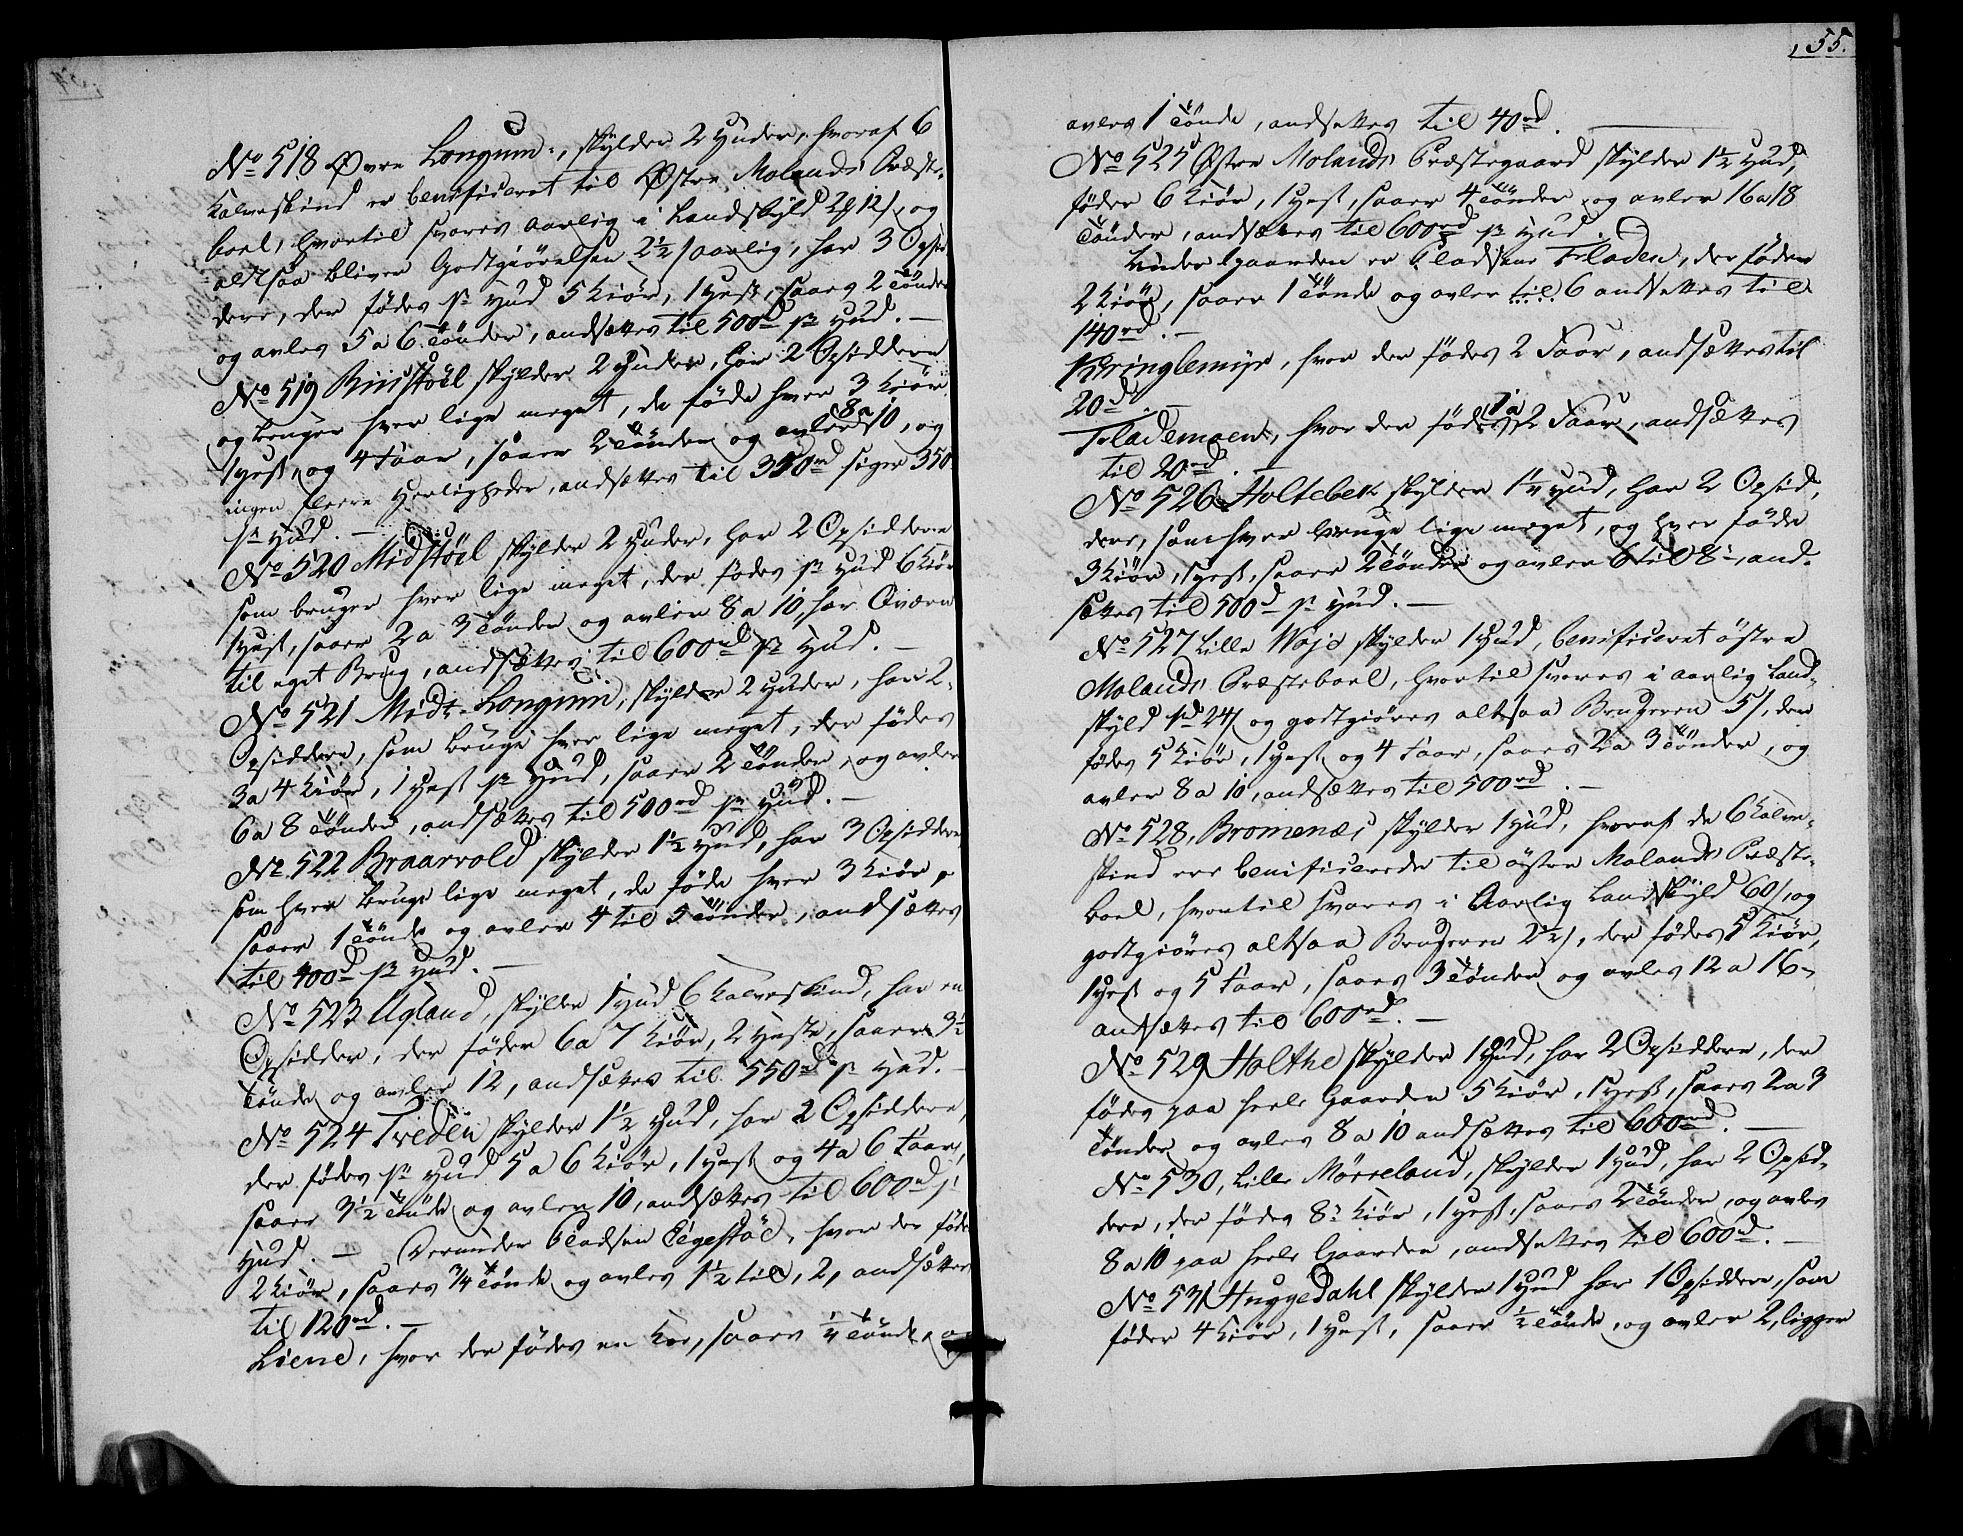 No 518 Øvre Longum, skylder 2 Huder, hvoraf 6
Kalveskind er benificeret til Østre Molands Præste-
boel, hvortil svares aarlig i Landskyld 12 s, og
altsaa bliver Godtgiørelsen 2½ s aarlig, har 3 Opsid-
dere, der fødes pr Hud 5 Kiør, 1 Hest, saaes 2 Tønder
og avles 5 a 6 Tønder, andsættes til 500rd pr Hud. —
No 519 Biistöel skylder 2 Huder, har 2 Opsiddere
og bruger hver lige meget, de føde hver 3 Kiør
1 Hest, og 4 Faar, saaer 2 Tønder og avler 8 a 10, og
ingen fleere Herligheder, andsættes til 350rd siger 350
pr Hud. —
No 520 Midstöel skylder 2 Huder, har 2 Opsiddere
som bruger hver lige meget, der fødes pr Hud 6 Kiør
1 Hest, saaer 2 a 3 Tønder og avler 8 a 10, har Qværn
til eget Brug, andsættes til 600rd pr Hud. —
No 521 Midt-Longum, skylder 2 Huder, har 2
Opsiddere, som bruge hver lige meget, der fødes
3 a 4 Kiør, 1 Hest pr Hud, saaer 2 Tønder og avler
6 a 8 Tønder, andsættes til 500rd pr Hud. —
No 522 Braarvold skylder 1½ Hud, har 3 Opsiddere
som hver bruge lige meget, de føde hver 3 Kiør,
saaer 1 Tønde og avler 4 til 5 Tønder, andsættes
til 400d pr Hud. —
No 523 Ugland, skylder 1 Hud 6 Kalveskind, har en
Opsidder, der føder 6 a 7 Kiør, 2 Heste, saaer 3½
Tønde og avler 12, andsættes til 550d pr Hud. —
No 524 Tveden skylder 1½ Hud, har 2 Opsiddere,
der fødes pr Hud 5 a 6 Kiør, 1 Hest og 4 a 6 Faar,
saaer 3½ Tønde og avler 10, andsættes til 600d pr
Hud. — Derunder Pladsen Eegestöe, hvor der føde
2 Kiør, saaes ¾ Tønde og avles 1½ til 2, andsættes
til 120rd. —
Liene, hvor der fødes en Koe, saaes ¼ Tønde, og
55.
avles 1 Tønde, andsettes til 40rd. —
No 525 Østre Molands Præstegaard skylder 1½ Hud,
føder 6 Kiør, 1 Hest, saaer 4 Tønder og avler 16 a 18
Tønder, andsættes til 600rd pr Hud.
Under Gaarden er Pladsene Fladen, der føder
2 Kiør, saaer 1 Tønde og avler til 6 andsettes til
140rd. —
Kringlemyr, hvor der fødes 2 Faar, andsættes til
20d. —
Flademoen, hvor der fødes 1 a 2 Faar, andsættes
til 20rd. —
No 526 Holtebek skylder 1¼ Hud, har 2 Opsid-
dere, som hver bruge lige meget, og hver føde
3 Kiør, 1 Hest, saaer 2 Tønder og avler 6 til 8, and-
sættes til 500d pr Hud. —
No 527 Lille Woje skylder 1 Hud, benificeret østre
Molands Præsteboel, hvortil svares i aarlig Land-
skyld 24 s og godtgiøres altsaa Brugeren 5 s, der
fødes 5 Kiør, 1 Hest og 4 Faar, saaes 2 a 3 Tønder, og
avler 8 a 10, andsættes til 500rd. —
No 528, Bromenæs skylder 1 Hud, hvoraf de 6 Kalve-
skind ere benificerede til østre Molands Præste-
boel, hvortil svares i Aarlig Landskyld 60 s, og
godtgiøres altsaa Brugeren 2½ s, der fødes 5 Kiør,
1 Hest og 5 Faar, saaes 3 Tønder og avles 12 a 16,
andsættes til 600rd. —
No 529 Holthe skylder 1 Hud, har 2 Opsiddere, der
fødes paa heele Gaarden 5 Kiør, 1 Hest, saaes 2 a 3
Tønder og avles 8 a 10 andsættes til 600rd. —
No 530, Lille Mørreland, skylder 1 Hud, har 2 Opsid-
dere, der fødes 8 Kiør, 1 Hest, saaes 2 Tønder, og avles
8 a 10 paa heele Gaarden, andsettes til 600d. —
No 531 Huggedahl skylder 1 Hud har 1 Opsiddere, som
føder 4 Kiør, 1 Hest, saaer ½ Tønde, og avler 2, ligger